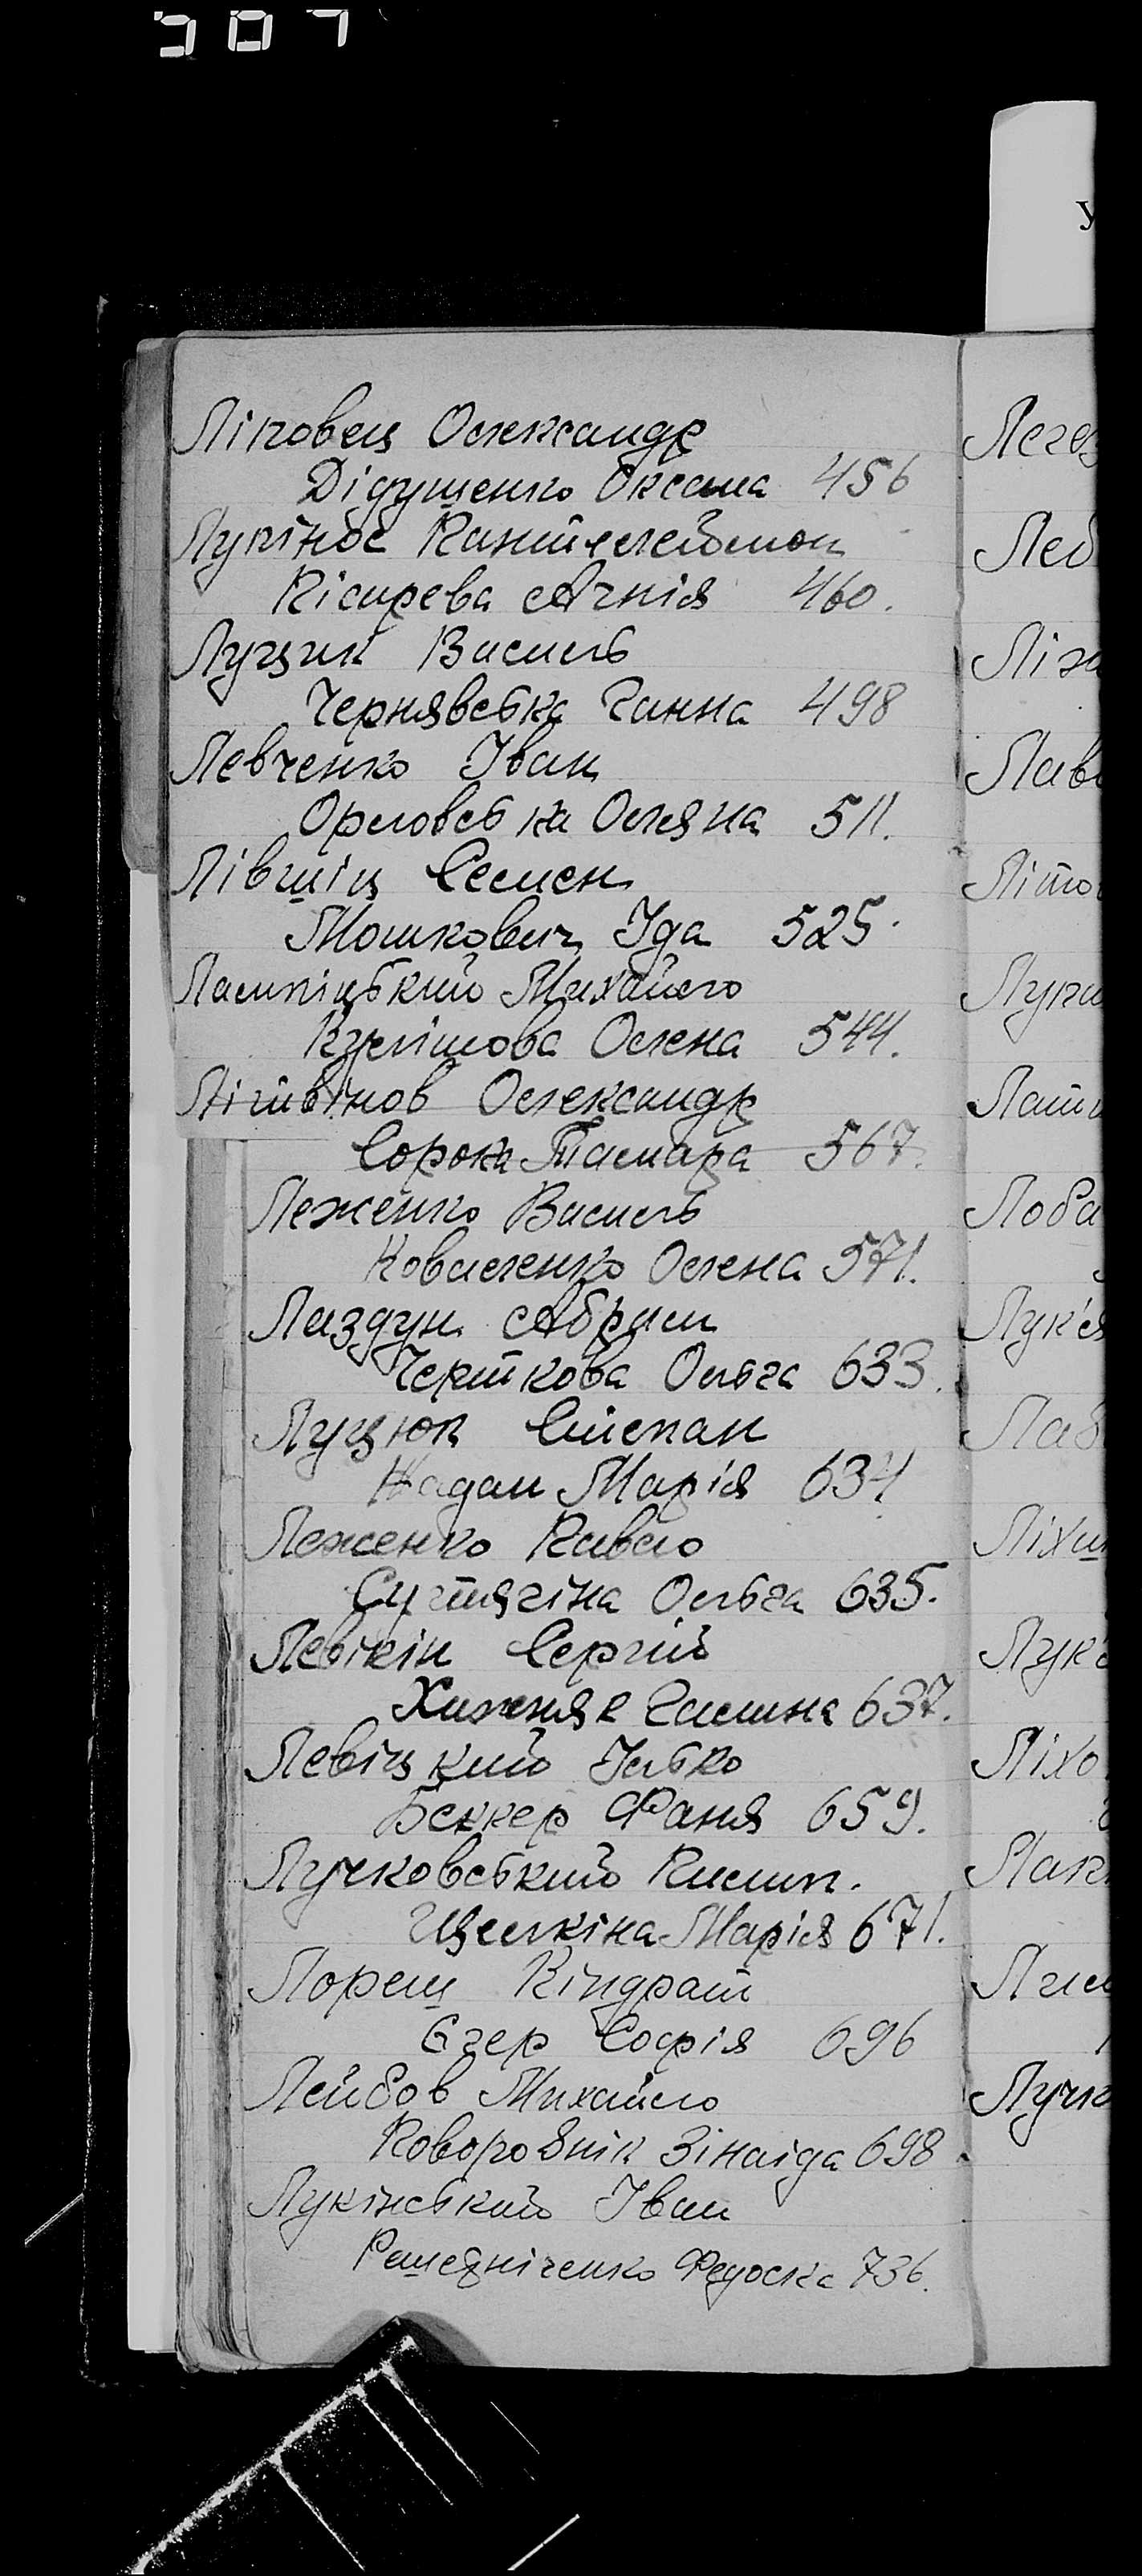 507
У
Ліповец Олександр
Дідушенко Оксана 456
Лупінос Пантелеймон
Пісарева Агнія 460.
Луцик Василь
Чернявська Ганна 498
Левченко Іван
Орловська Олена 511.
Лівшіц Семен
Мошкович Іда 525.
Лампіцький Михайло
Кулішова Олена 544.
Літвінов Олександр
Сорока Тамара 567.
Леженко Василь
Коваленко Олена 571.
Лаздун Абрам
Черткова Ольга 633.
Луцюк Степан
Жадан Марія 634
Леженко Павло
Сутягіна Ольга 635.
Левікін Сергій
Хижняк Галина 637.
Левіцкий Ілько
Беккер Фаня 659.
Лучковський Пилип.
Целкіна Марія 671.
Лорещ Кіндрат
Єгер Софія 696
Лейбов Михайло
Зінаіда 698
Лукінський Іван
Решедніченко Федоска 736.
Леб
Ліж
Лав
Літо
Лупи
Лати
Лоба
Лук'я
Ліхо
Лучк